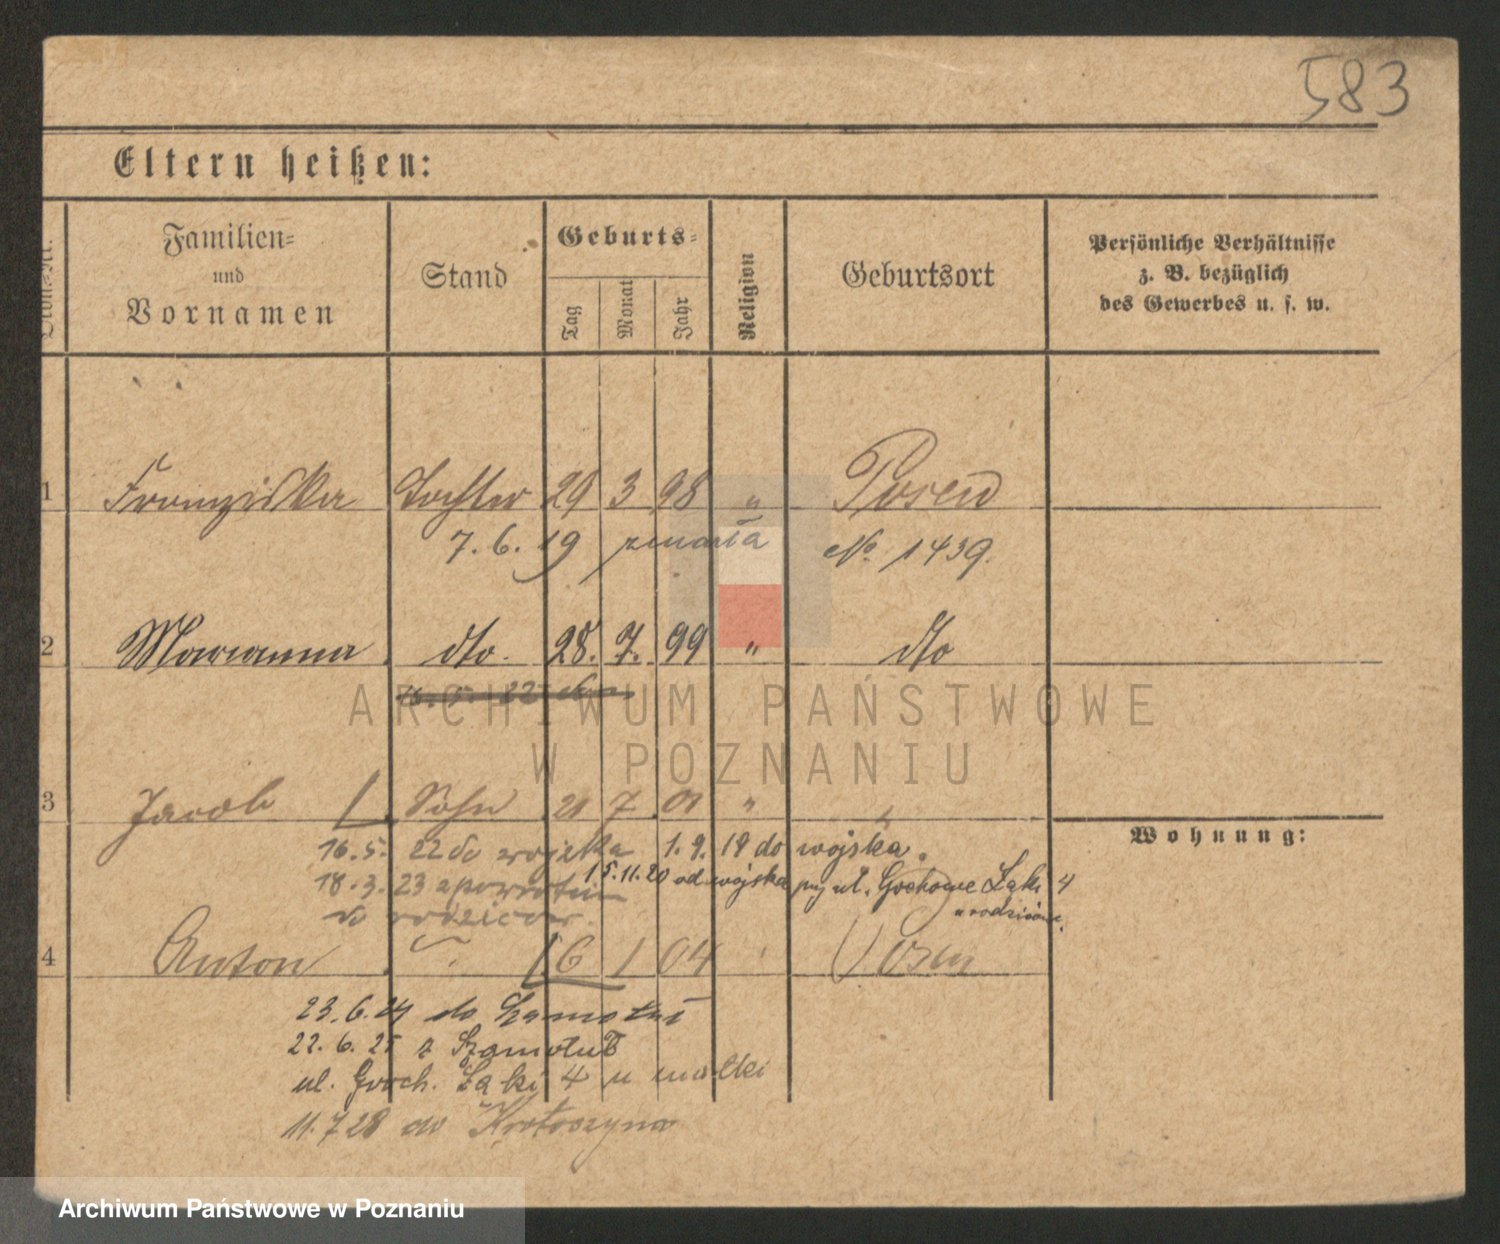 583
Eltern heißen:
Ordn.-Nr.
Familien-
und
Vornamen
Stand
Geburts-
Tag
Monat
Jahr
Religion
Geburtsort
Persönliche Verhältnisse
z. B. bezüglich
des Gewerbes u. s. w.
1 Franziska Tochter 29 3 98 " Posen
7. 6. 19 zmarła No. 1439.
2 Marianna dto. 28. 7. 99 " dto
16. 5. 22
3 Jacob Sohn 21 7 01 "
Wohnung:
16. 5. 22 do wojska 1. 9. 19 do wojska.
15. 11. 20 od wojska przy ul. Grochowe Łąki 4
u rodziców.
18. 3. 23 z powrotem
do rodziców.
4 Anton 6 1 04 Posen
23. 6. 24 do Szamotuł
22. 6. 25 z Szamotuł
ul. Groch. Łąki 4 u matki
11. 7 28 do Krotoszyna
ARCHIWUM PAŃSTWOWE
W POZNANIU
Archiwum Państwowe w Poznaniu